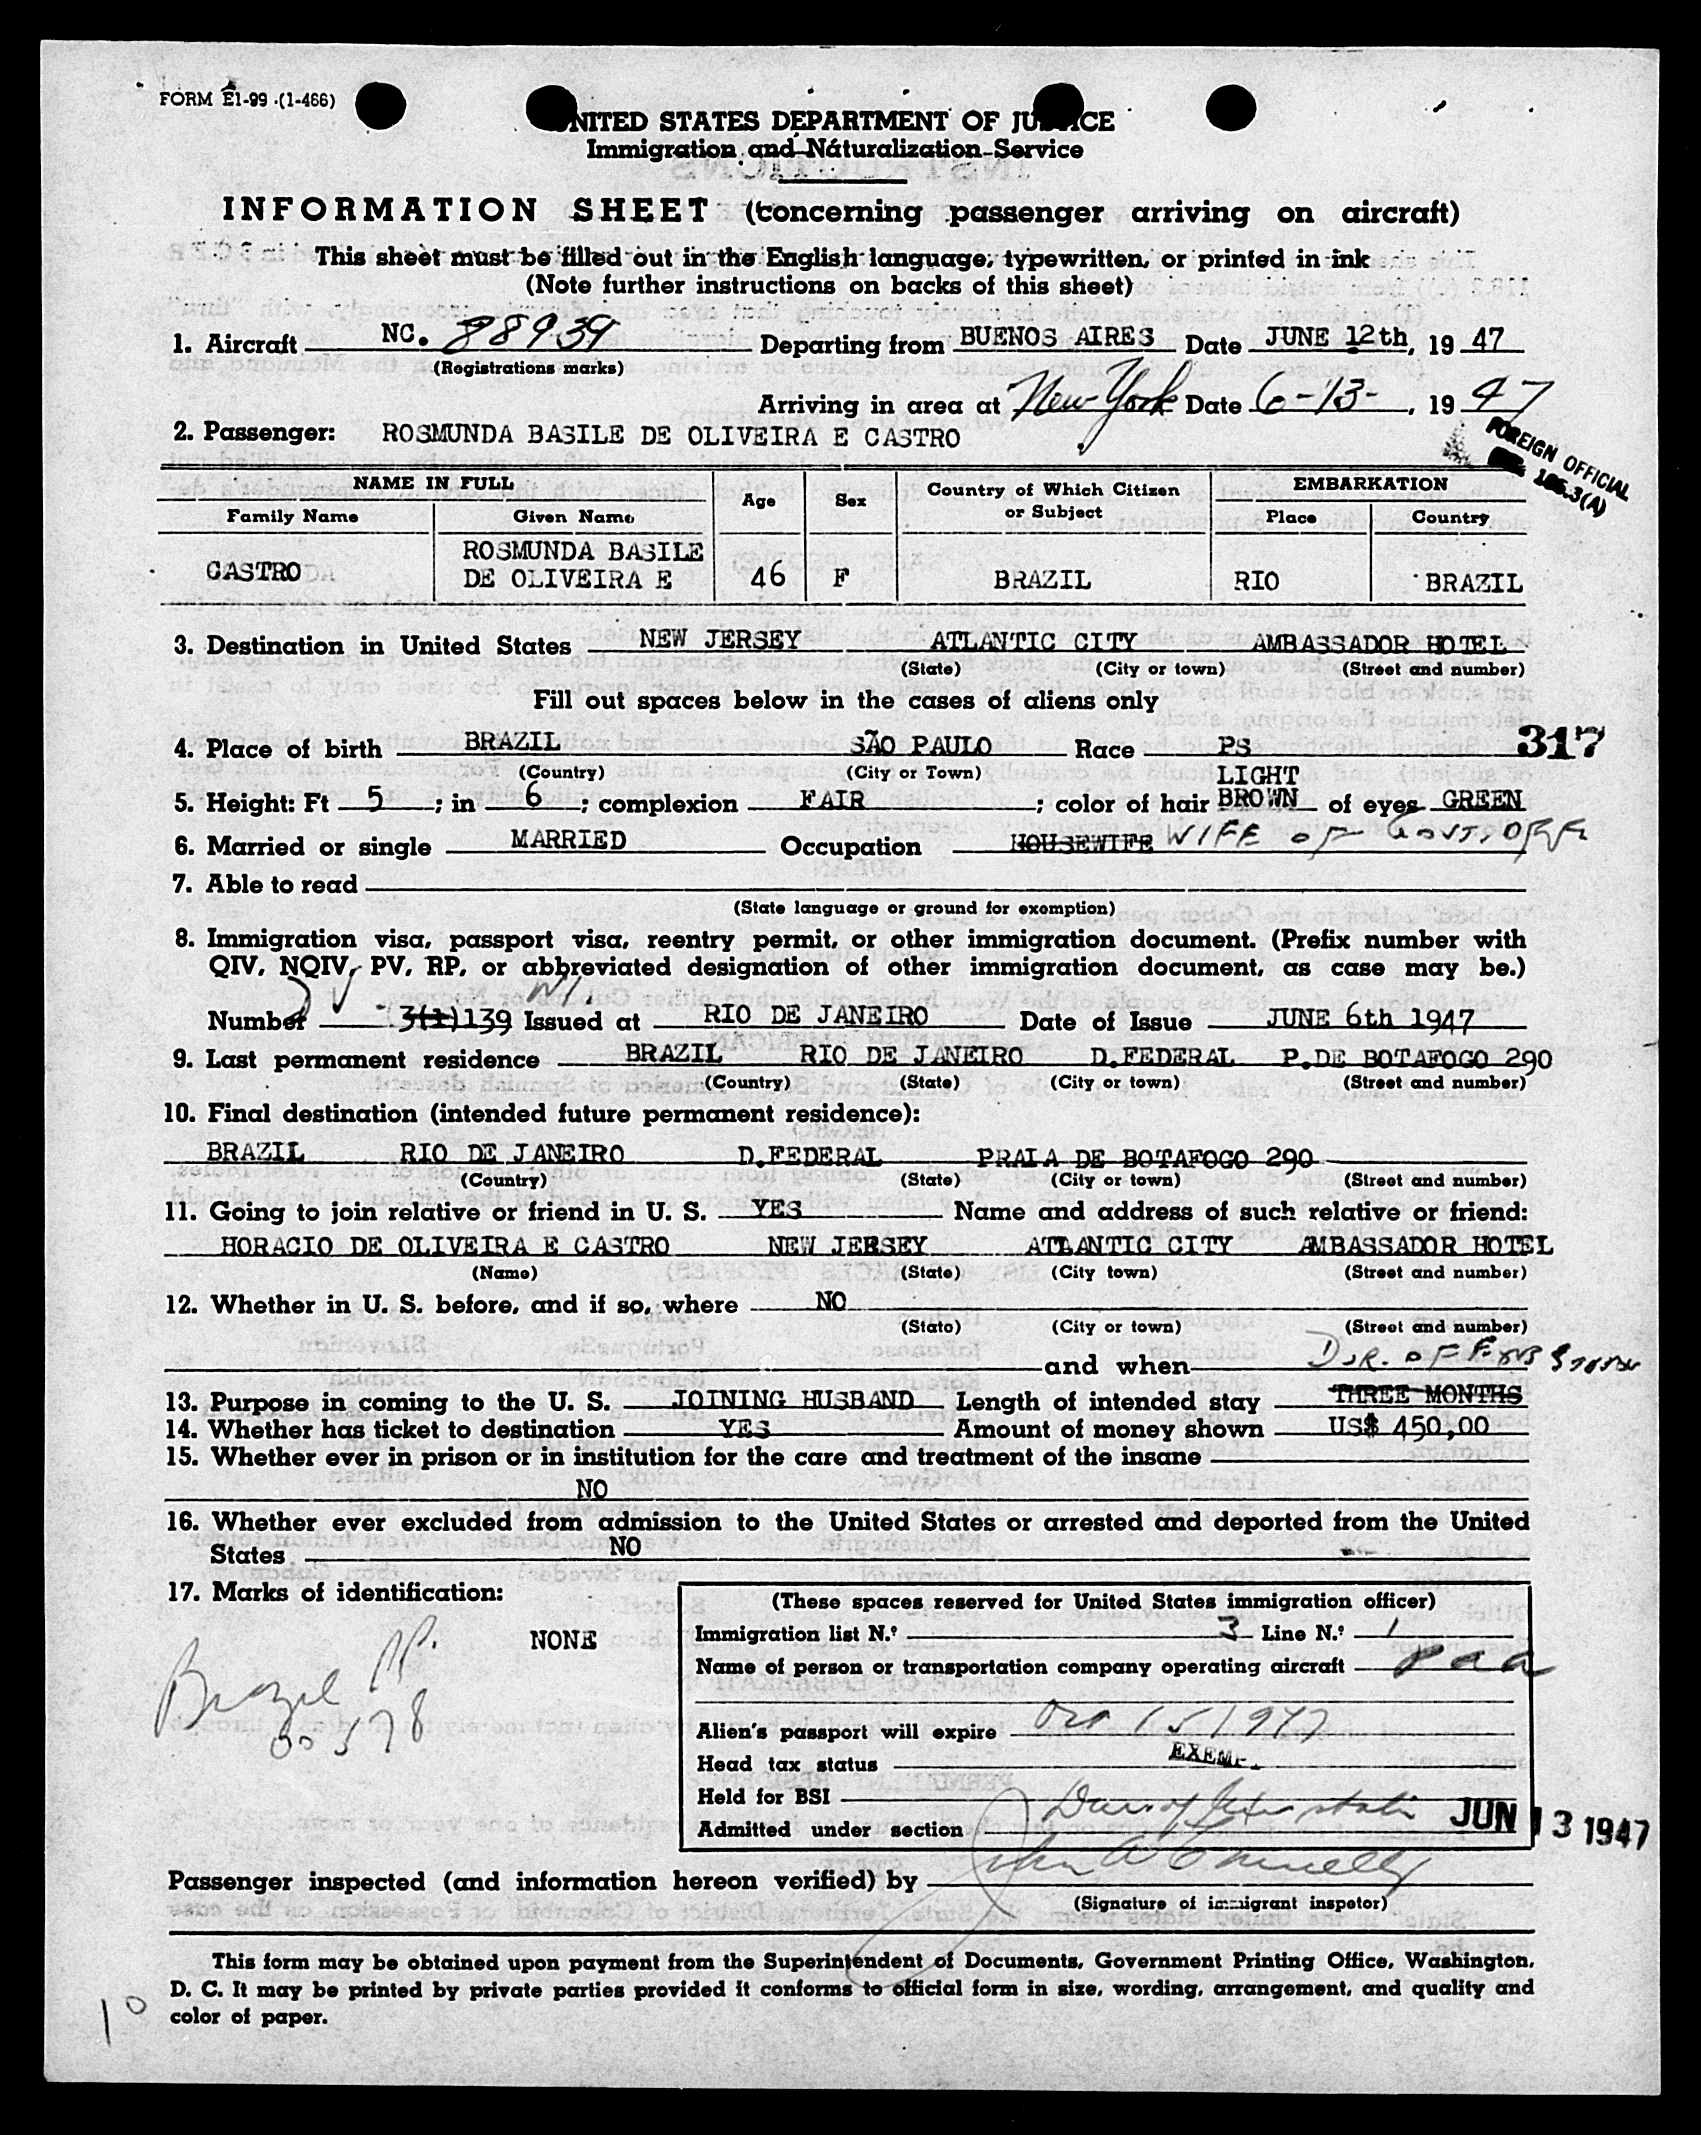 FORM E1-99 (1-466)
UNITED STATES DEPARTMENT OF JUSTICE
Immigration and Naturalization Service
INFORMATION SHEET (concerning passenger arriving on aircraft)
This sheet must be filled out in the English language, typewritten, or printed in ink
(Note further instructions on backs of this sheet)
1. Aircraft NC. 88939 Departing from BUENOS AIRES Date JUNE 12th, 19 47
(Registrations marks)
Arriving in area at New York Date 6-13-, 19 47
2. Passenger: ROSMUNDA BASILE DE OLIVEIRA E CASTRO
FOREIGN OFFICIAL
3(A)
NAME IN FULL Age Sex Country of Which Citizen or Subject EMBARKATION
Family Name Given Name Place Country
CASTRO ROSMUNDA BASILE DE OLIVEIRA E 46 F BRAZIL RIO BRAZIL
3. Destination in United States NEW JERSEY ATLANTIC CITY AMBASSADOR HOTEL
(State) (City or town) (Street and number)
Fill out spaces below in the cases of aliens only
4. Place of birth BRAZIL SÃO PAULO Race PS 317
(Country) (City or Town) LIGHT
5. Height: Ft 5 ; in 6 ; complexion FAIR ; color of hair BROWN of eyes GREEN
6. Married or single MARRIED Occupation HOUSEWIFE WIFE OF GOVT. OFF
7. Able to read
(State language or ground for exemption)
8. Immigration visa, passport visa, reentry permit, or other immigration document. (Prefix number with
QIV, NQIV, PV, RP, or abbreviated designation of other immigration document, as case may be.)
Number 3(1)139 Issued at RIO DE JANEIRO Date of Issue JUNE 6th 1947
9. Last permanent residence BRAZIL RIO DE JANEIRO D.FEDERAL P.DE BOTAFOGO 290
(Country) (State) (City or town) (Street and number)
10. Final destination (intended future permanent residence):
BRAZIL RIO DE JANEIRO D.FEDERAL PRAIA DE BOTAFOGO 290
(Country) (State) (City or town) (Street and number)
11. Going to join relative or friend in U. S. YES Name and address of such relative or friend:
HORACIO DE OLIVEIRA E CASTRO NEW JERSEY ATLANTIC CITY AMBASSADOR HOTEL
(Name) (State) (City town) (Street and number)
12. Whether in U. S. before, and if so, where NO
(State) (City or town) (Street and number)
and when DUR. OF
13. Purpose in coming to the U. S. JOINING HUSBAND Length of intended stay THREE MONTHS
14. Whether has ticket to destination YES Amount of money shown US$ 450,00
15. Whether ever in prison or in institution for the care and treatment of the insane
NO
16. Whether ever excluded from admission to the United States or arrested and deported from the United
States NO
17. Marks of identification:
NONE
Brazil PP.
00578
(These spaces reserved for United States immigration officer)
Immigration list N.º 3 Line N.º 1
Name of person or transportation company operating aircraft paa
Alien's passport will expire 15 1947
Head tax status EXEMP.
Held for BSI
Admitted under section JUN 13 1947
Passenger inspected (and information hereon verified) by
(Signature of immigrant inspetor)
This form may be obtained upon payment from the Superintendent of Documents, Government Printing Office, Washington,
D. C. It may be printed by private parties provided it conforms to official form in size, wording, arrangement, and quality and
color of paper.
10